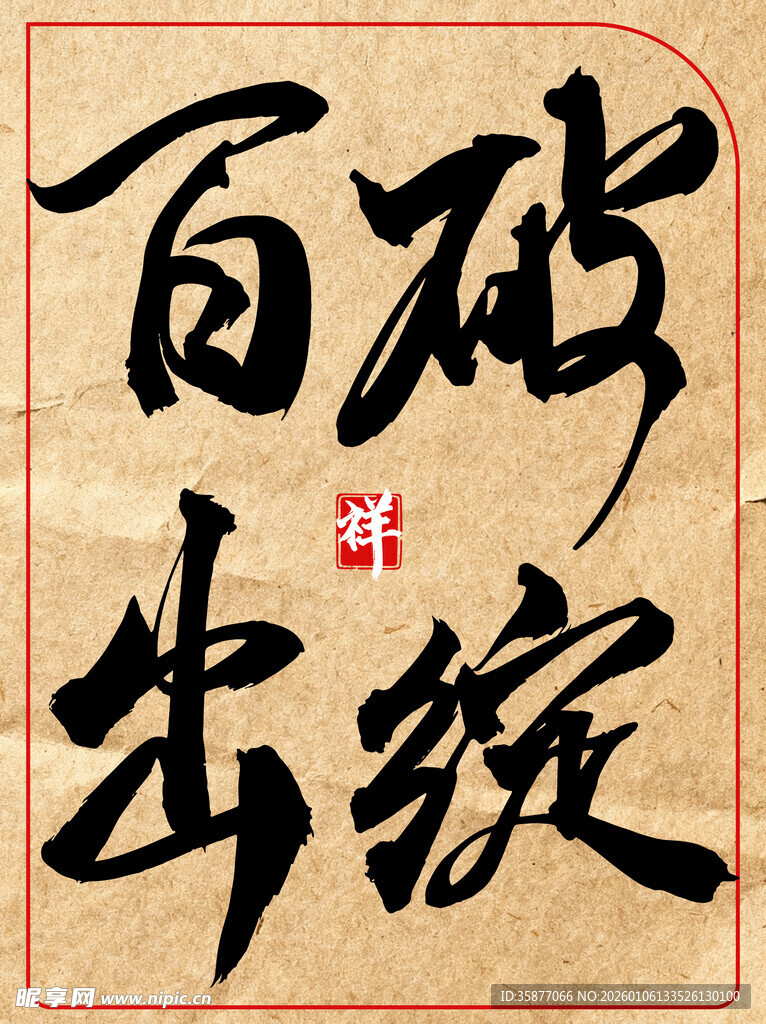 破绽
百出
祥
昵享网 www.nipic.cn
ID:35877066 NO:20260106133526130100